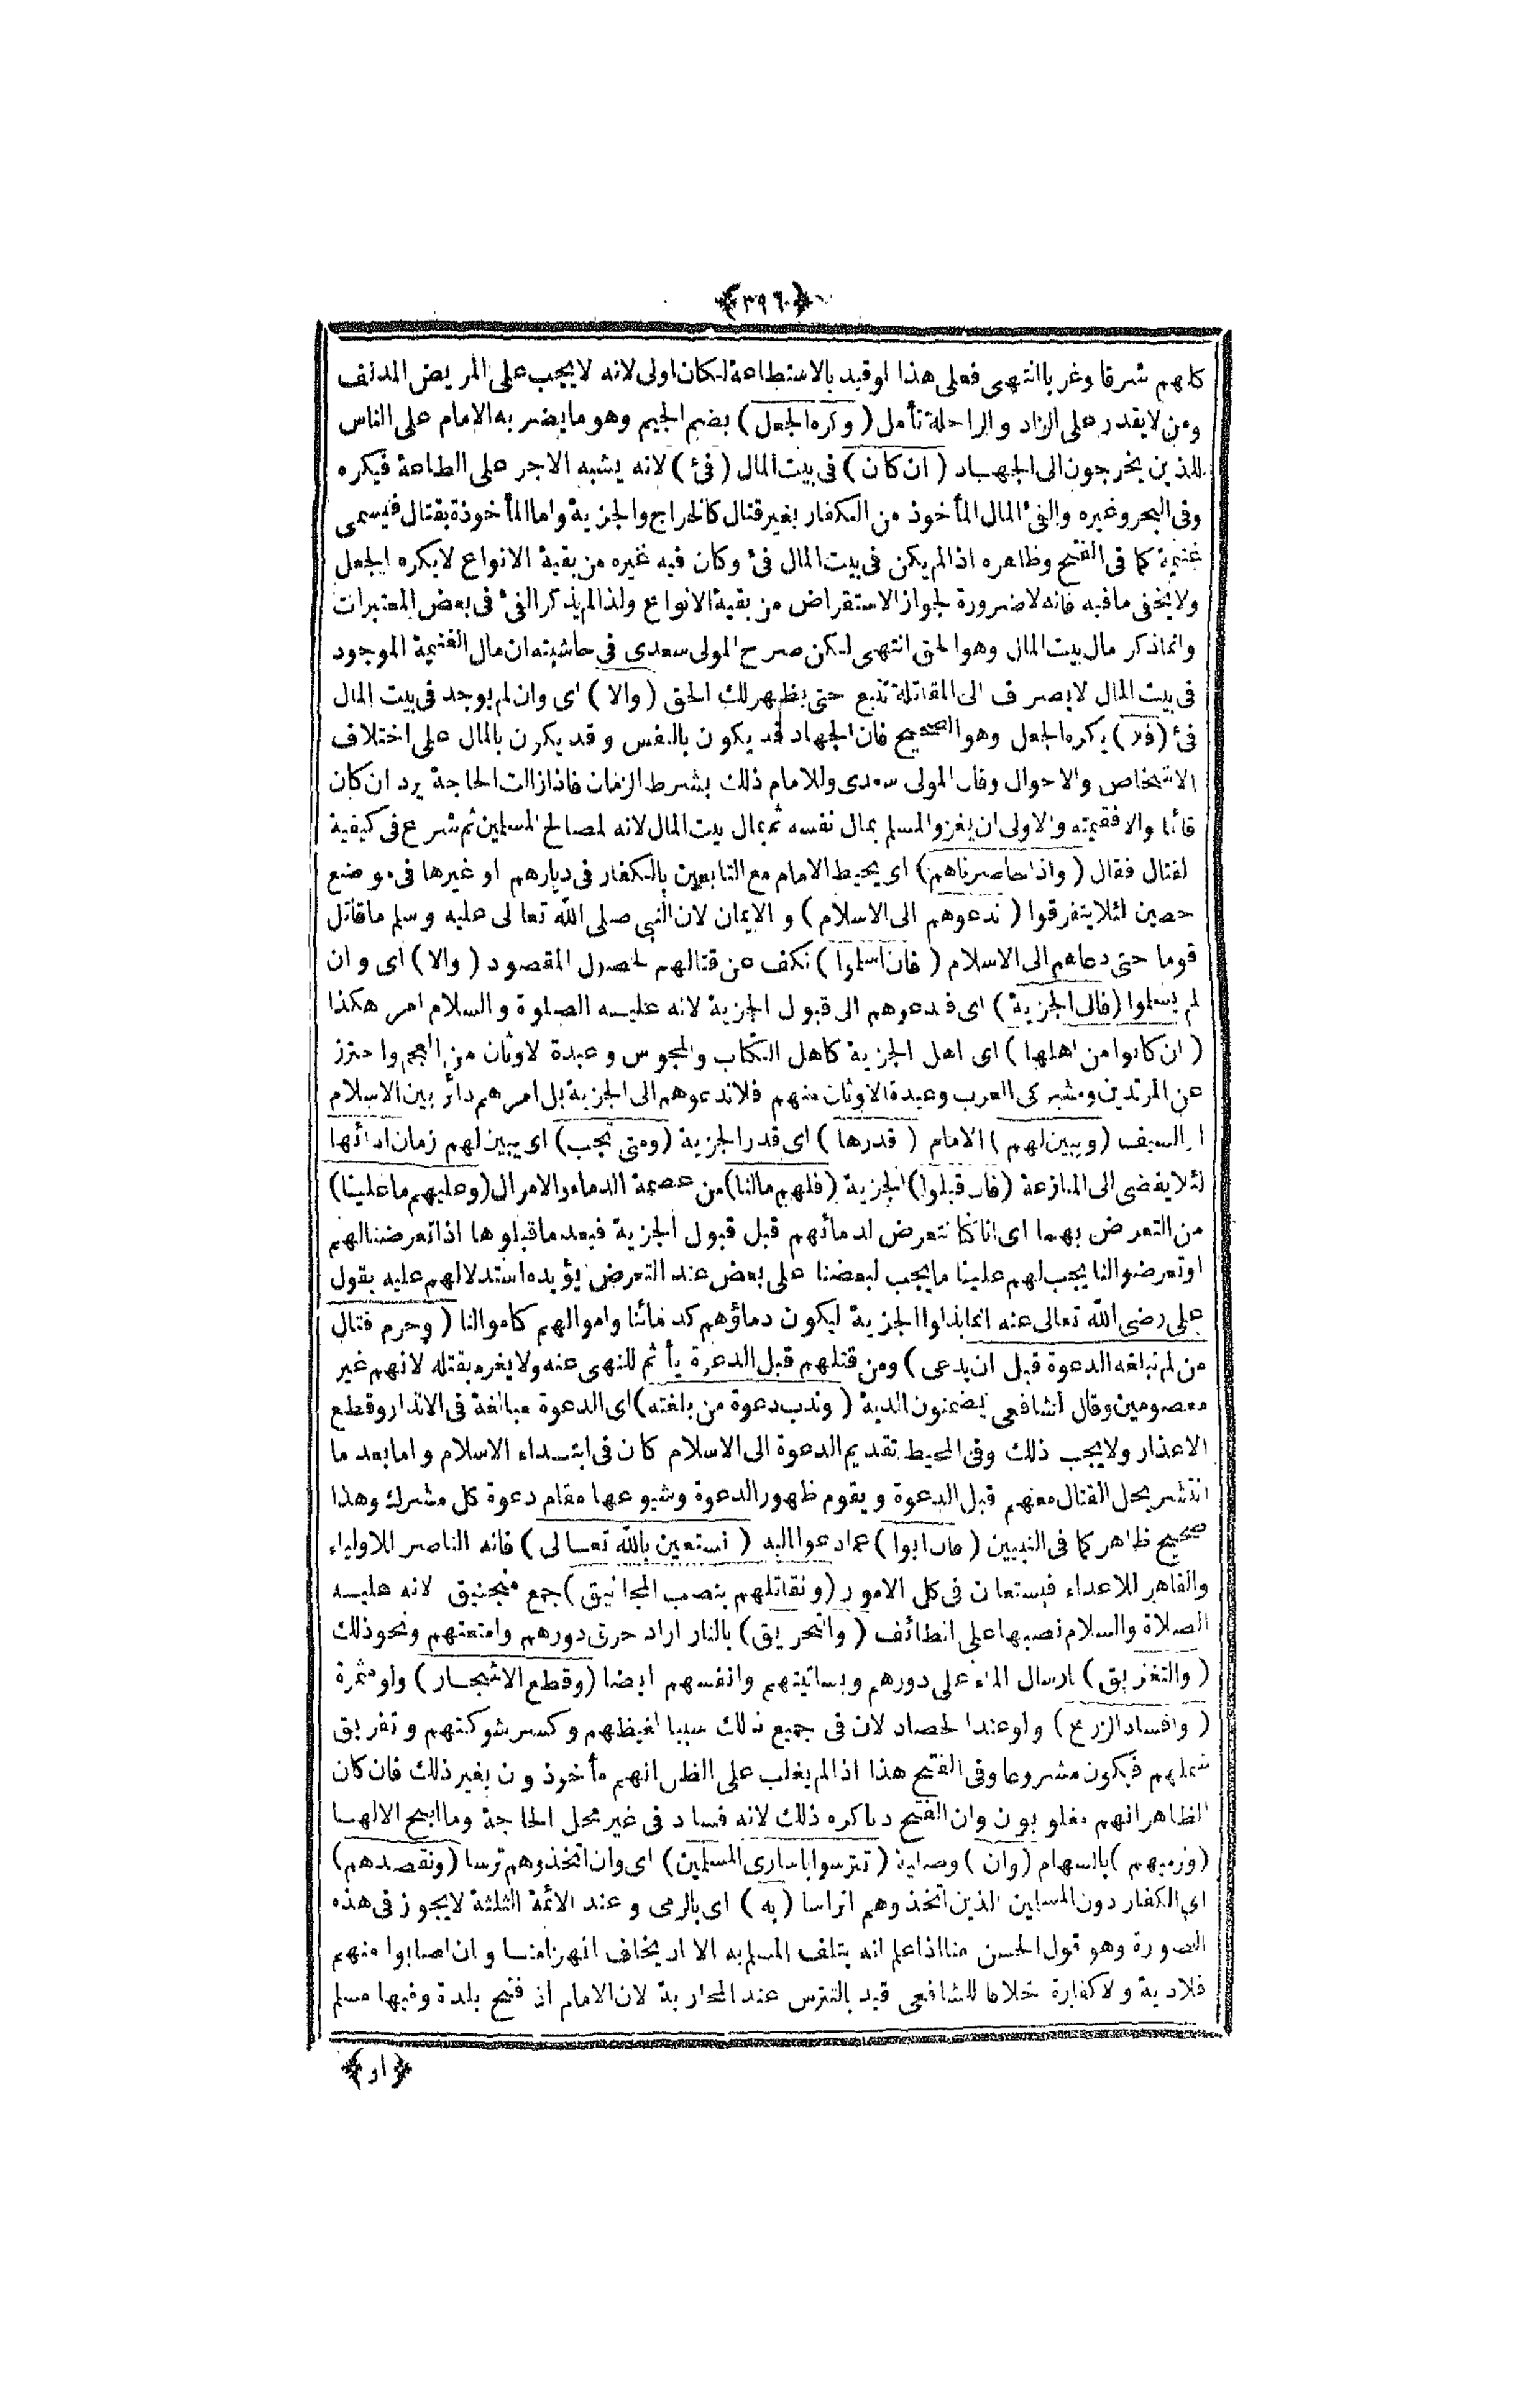 ﴿٣٩٦﴾
كلهم شرقا وغربا انتهى فعلى هذا لو قيد بالاستطاعة لكان اولى لانه لا يجب على المريض المدنف
ومن لا يقدر على الزاد والراحلة تأمل (وكره الجعل) بضم الجيم وهو ما يضربه الامام على الناس
للذين يخرجون الى الجهاد (ان كان) فى بيت المال (فئ) لانه يشبه الاجر على الطاعة فيكره
وفى البحر وغيره والفئ المال المأخوذ من الكفار بغير قتال كالخراج والجزية واما المأخوذة بقتال فيسمى
غنيمة كما فى الفتح وظاهره اذا لم يكن فى بيت المال فئ وكان فيه غيره من بقية الانواع لا يكره الجعل
ولا يخفى ما فيه فانه لا ضرورة لجواز الاستقراض من بقية الانواع ولذا لم يذكر الفئ فى بعض المعتبرات
وانما ذكر مال بيت المال وهو الحق انتهى لكن صرح المولى سعدى فى حاشيته ان مال الغنيمة الموجود
فى بيت المال لا يصرف الى المقاتلة تتبع حتى يظهر لك الحق (والا) اى وان لم يوجد فى بيت المال
فئ (فلا) يكره الجعل وهو الصحيح فان الجهاد قد يكون بالنفس وقد يكون بالمال على اختلاف
الاشخاص والاحوال وقال المولى سعدى وللامام ذلك بشرط الزمان فاذا زالت الحاجة يرد ان كان
قائما والا فقيمته والاولى ان يغزو المسلم بمال نفسه ثم بمال بيت المال لانه لمصالح المسلمين ثم شرع فى كيفية
لقتال فقال (واذا حاصرناهم) اى يحيط الامام مع التابعين بالكفار فى ديارهم او غيرها فى موضع
حصين لئلا يتفرقوا (ندعوهم الى الاسلام) والايمان لان النبى صلى الله تعالى عليه وسلم ما قاتل
قوما حتى دعاهم الى الاسلام (فان اسلموا) نكف عن قتالهم لحصول المقصود (والا) اى وان
لم يسلموا (فالى الجزية) اى فندعوهم الى قبول الجزية لانه عليه الصلوة والسلام امر هكذا
(ان كانوا من اهلها) اى اهل الجزية كاهل الكتاب والمجوس وعبدة لاوثان من العجم واحترز
عن المرتدين ومشركى العرب وعبدة الاوثان منهم فلا ندعوهم الى الجزية بل امرهم دائر بين الاسلام
او السيف (ويبين لهم) الامام (قدرها) اى قدر الجزية (ومتى تجب) اى يبين لهم زمان ادائها
لئلا يفضى الى المنازعة (فان قبلوا) الجزية (فلهم مالنا) من عصمة الدماء والاموال (وعليهم ما علينا)
من التعرض بهما اى انا كنا نتعرض لدمائهم قبل قبول الجزية فبعد ما قبلوها اذا تعرضنا لهم
او تعرضوا لنا يجب لهم علينا ما يجب لبعضنا على بعض عند التعرض يؤيده استدلالهم عليه بقول
على رضى الله تعالى عنه انما بذلوا الجزية ليكون دماؤهم كدمائنا واموالهم كاموالنا (وحرم قتال
من لم تبلغه الدعوة قبل ان يدعى) ومن قتلهم قبل الدعوة يأثم للنهى عنه ولا يغرم بقتله لانهم غير
معصومين وقال الشافعى يضمنون الدية (وندب دعوة من بلغته) اى الدعوة مبالغة فى الانذار وقطع
الاعذار ولا يجب ذلك وفى المحيط تقديم الدعوة الى الاسلام كان فى ابتداء الاسلام واما بعد ما
انتشر يحل القتال معهم قبل الدعوة ويقوم ظهور الدعوة وشيوعها مقام دعوة كل مشرك وهذا
صحيح ظاهر كما فى التبيين (فان ابوا) عما دعوا اليه (نستعين بالله تعالى) فانه الناصر للاولياء
والقاهر للاعداء فيستعان فى كل الامور (ونقاتلهم بنصب المجانيق) جمع منجنيق لانه عليه
الصلاة والسلام نصبها على الطائف (والتحريق) بالنار اراد حرق دورهم وامتعتهم ونحو ذلك
(والتغريق) بارسال الماء على دورهم وبساتينهم وانفسهم ايضا (وقطع الاشجار) ولو مثمرة
(وافساد الزرع) ولو عند الحصاد لان فى جميع ذلك سببا لغيظهم وكسر شوكتهم وتفريق
شملهم فيكون مشروعا وفى الفتح هذا اذا لم يغلب على الظن انهم مأخوذون بغير ذلك فان كان
الظاهر انهم مغلوبون وان الفتح دنا كره ذلك لانه فساد فى غير محل الحاجة وما ابيح الا لها
(ورميهم) بالسهام (وان) وصلية (تترسوا باسارى المسلمين) اى وان اتخذوهم ترسا (ونقصدهم)
اى الكفار دون المسلمين الذين اتخذوهم اتراسا (به) اى بالرمى وعند الائمة الثلثة لا يجوز فى هذه
الصورة وهو قول الحسن منا اذا علم انه يتلف المسلم به الا ان يخاف انهزامنا وان اصابوا منهم
فلا دية ولا كفارة خلافا للشافعى قيد بالتترس عند المحاربة لان الامام اذ فتح بلدة وفيها مسلم
﴿او﴾